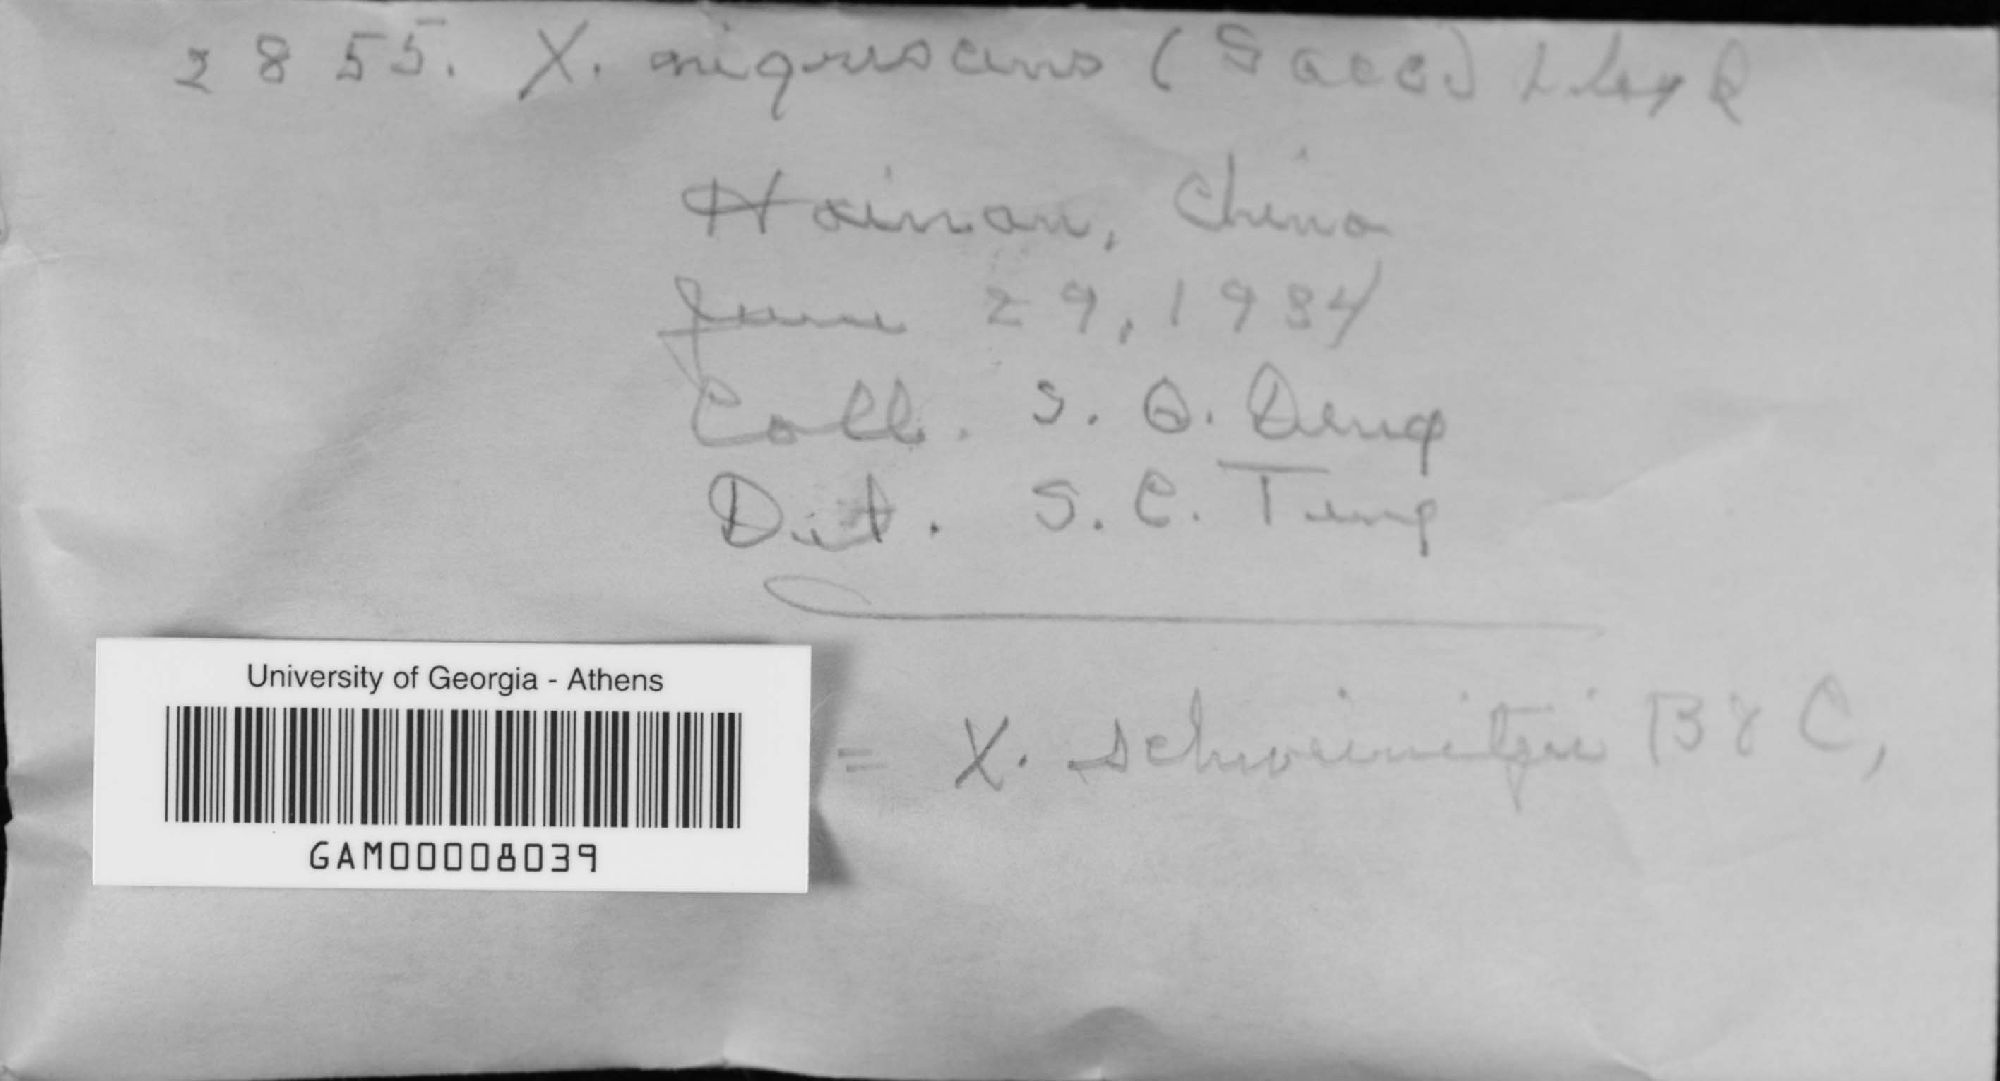 2855. X. nigrescens (Sacc.) Lloyd
Hainan, China
June 29, 1934
Coll. S. Q. Deng
Det. S. C. Teng
= X. schweinitzii B & C,
University of Georgia - Athens
GAM00008039